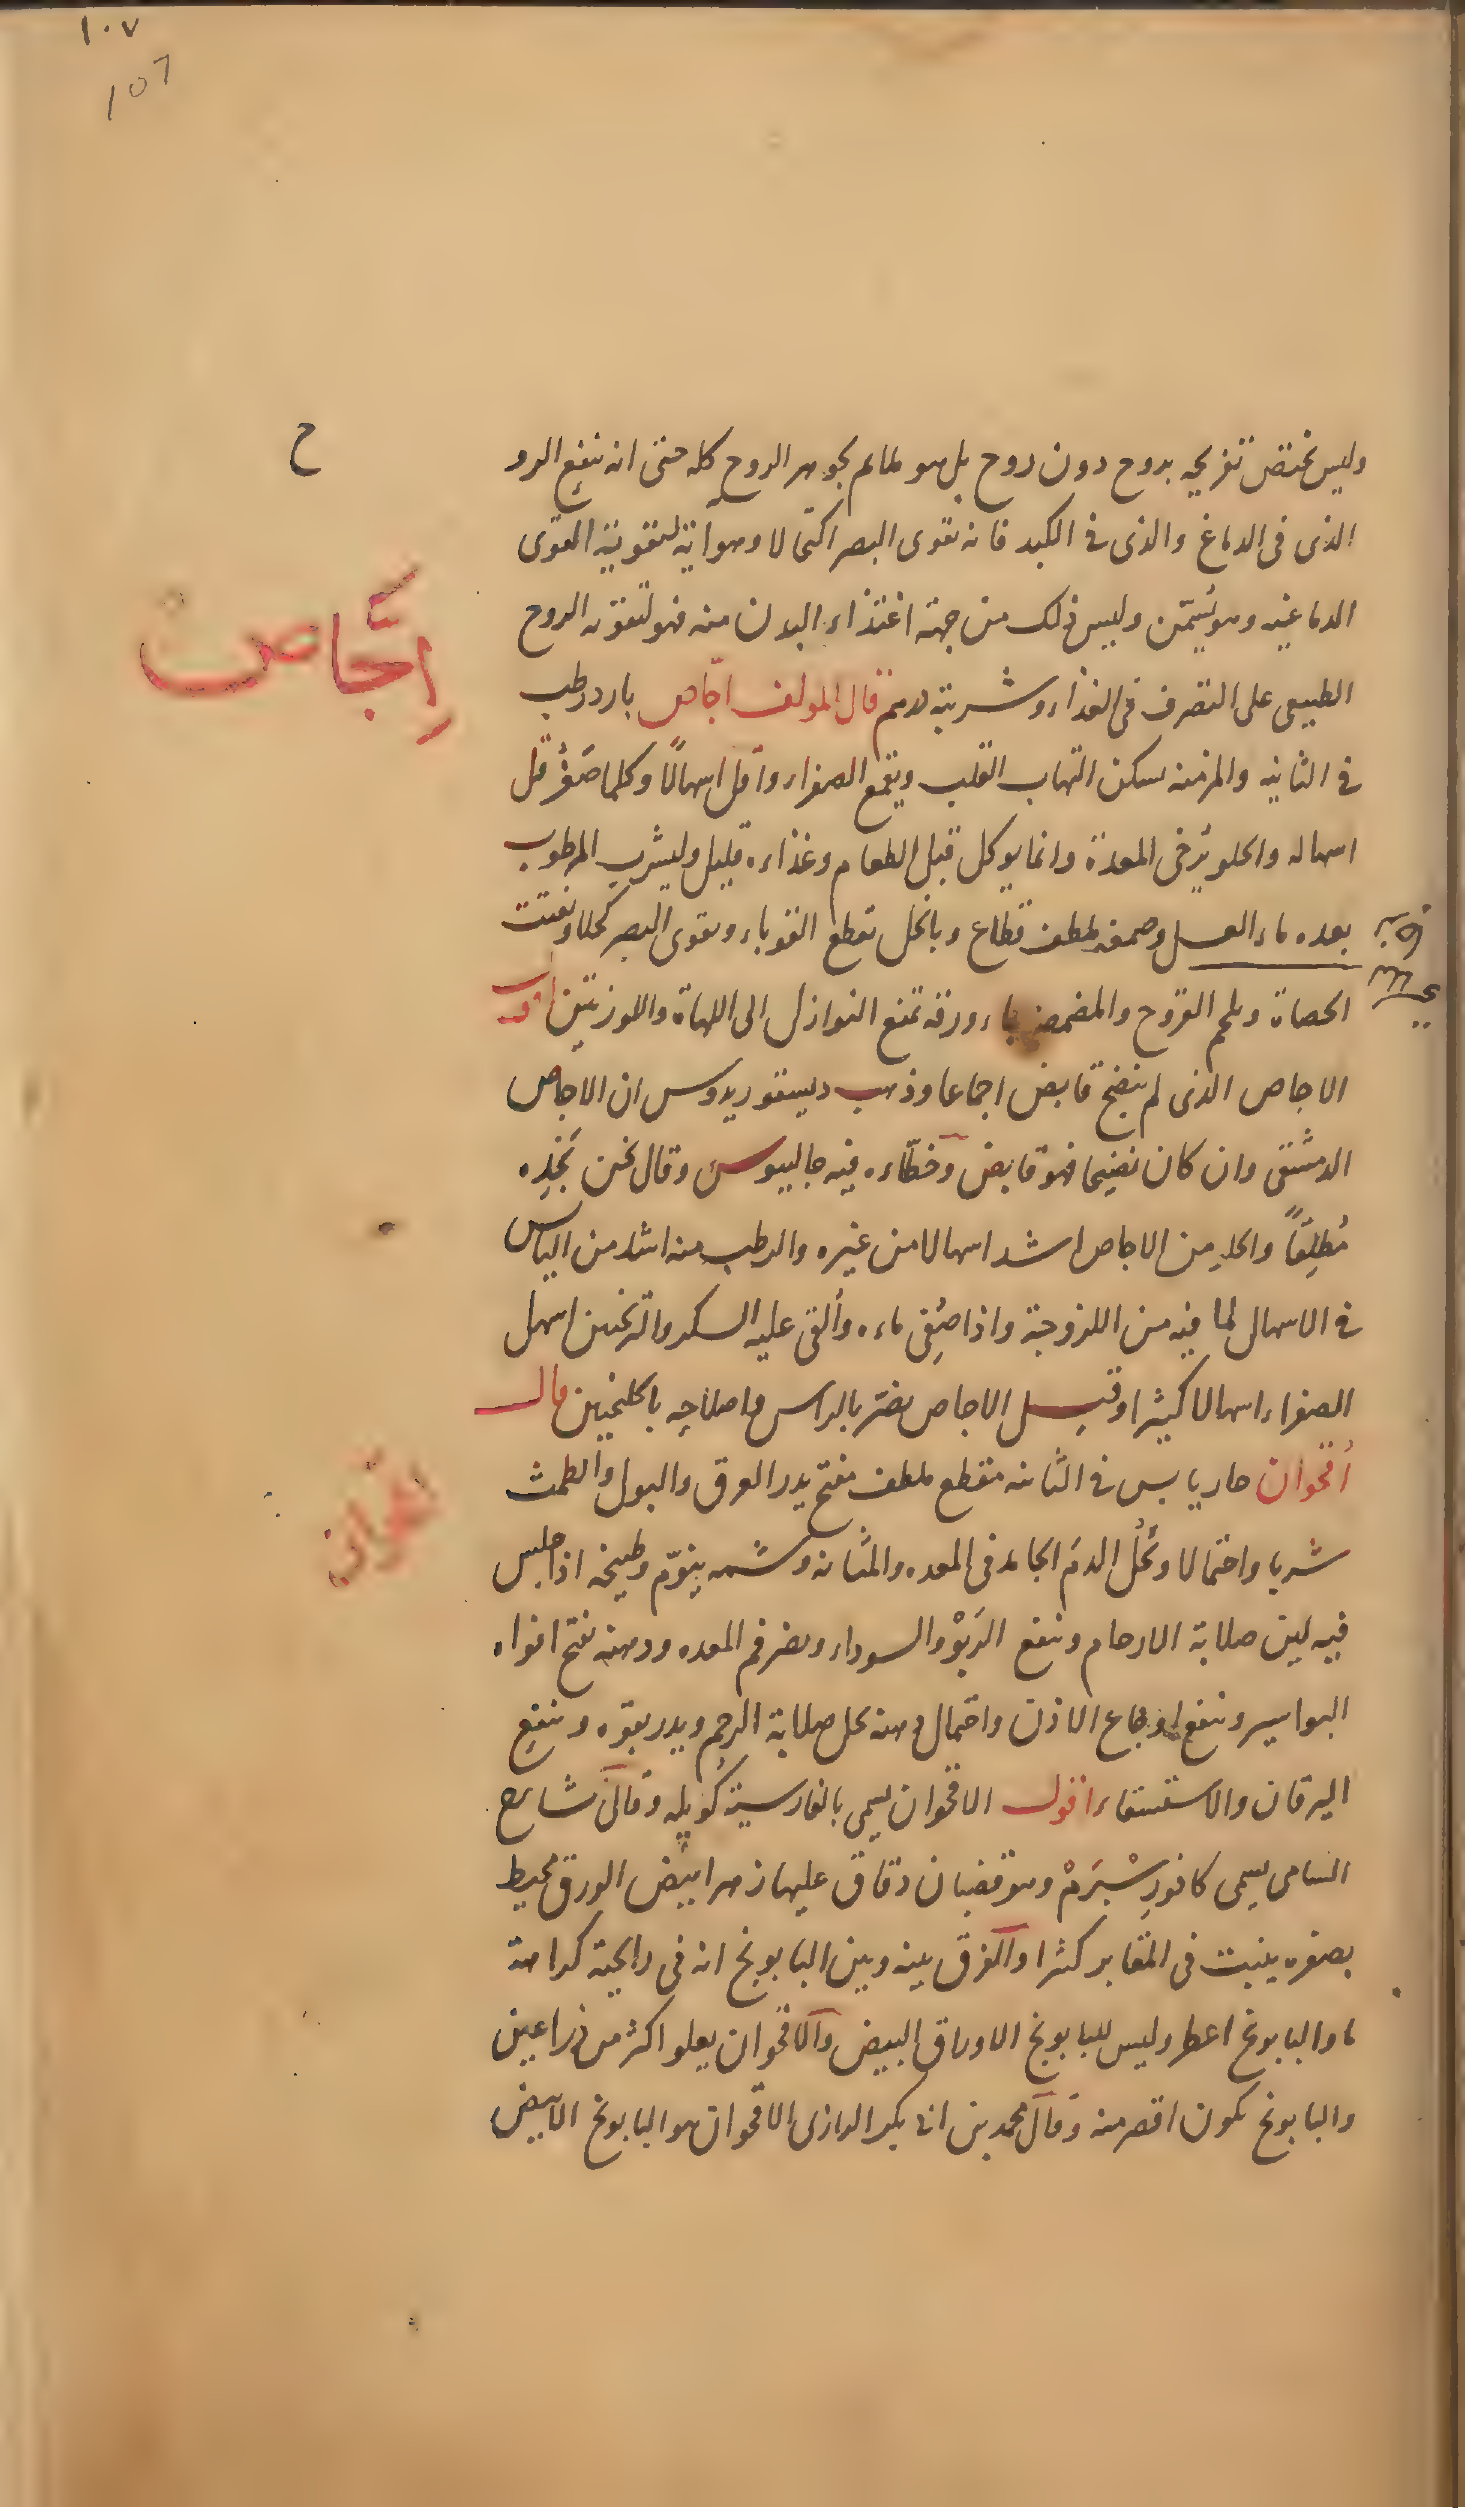 ١٠٧
107
ح
وليس يختص تفريحه بروح دون روح بل هو ملائم بجوهر الروح كله حتى انه ينفع الرو
الذى فى الدماغ والذى فى الكبد فانه يقوى البصر اكتحالا وهو اية لتقوية القوى
الدماغيه وهو يُسَمّن وليس ذلك من جهة اغتذاء البدن منه فهو لتقوته الروح
اِجَّاص
الطبيعى على التصرف فى الغذاء وشربته قال المولف اجّاص بارد رطب
فى الثانيه والمز منه يسكن التهاب القلب ويقمع الصفراء واقل اسهالًا وكلما صَغُر قل
اسهاله والحلو يُرخى المعدة وانما يوكل قبل الطعام وغذاءه قليل وليشرب المرطوب
بعده ماء العسل وصمغه ملطف قطاع وبالخل يقطع القوباء ويقوى البصر كحلا ويفتت
الحصاة ويلحم القروح والمضمضه بماء ورقه تمنع النوازل الى اللهاة واللوزتين اقول
الاجاص الذى لم ينضج قابض اجماعا وذهب ديسقوريدوس ان الاجاص
الدمشقى وان كان نضيجا فهو قابض وخطّاءه فيه جالينوس وقال نحن نَجِدُه
مُطلِقاً والحلو من الاجاص اشد اسهالا من غيره والرطب منه اشد من اليابس
فى الاسهال لما فيه من اللزوجة واذا صُفى ماءه والقى عليه السكر والترنجبين اسهل
الصفراء اسهالا كثيرا وقيل الاجاص يضر بالراس واصلاحه بالكلنجبين قال
اُقحوان
اُقحوان حار يابس فى الثانيه مقطع ملطف مفتح يدر العرق والبول والطمث
شربا واحتمالا ويُحَلِّل الدم الجامد فى المعده والمثانه وشمه ينوّم وطبيخه اذا جلس
فيه لين صلابة الارحام وينفع الرَبْو والسوداء ويضر فم المعده ودهنه يفتح افواه
البواسير وينفع اوجاع الاذن واحتمال دهنه يحل صلابة الرحم ويدر بقوه وينفع
اليرقان والاستسقاء اقول الاقحوان يسمى بالفارسية كُوپله وقال شارح
السامى يسمى كافورِ شْپَرَمْ وهو قضبان دقاق عليها زهر ابيض الورق محيط
بصفره ينبت فى المقابر كثرا والفرق بينه وبين البابونج انه فى رائحة كراهة
ما والبابونج اعطر وليس للبابونج الاوراق البيض والاقحوان يعلو اكثر من ذراعين
والبابونج يكون اقصر منه وقال محمد بن ابى بكر الرازى الاقحوان هو البابونج الابيض